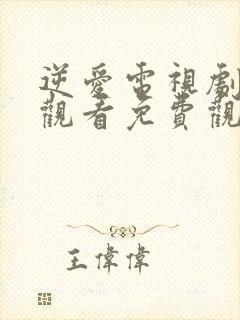 逆愛電視劇
觀看免費觀
王偉偉